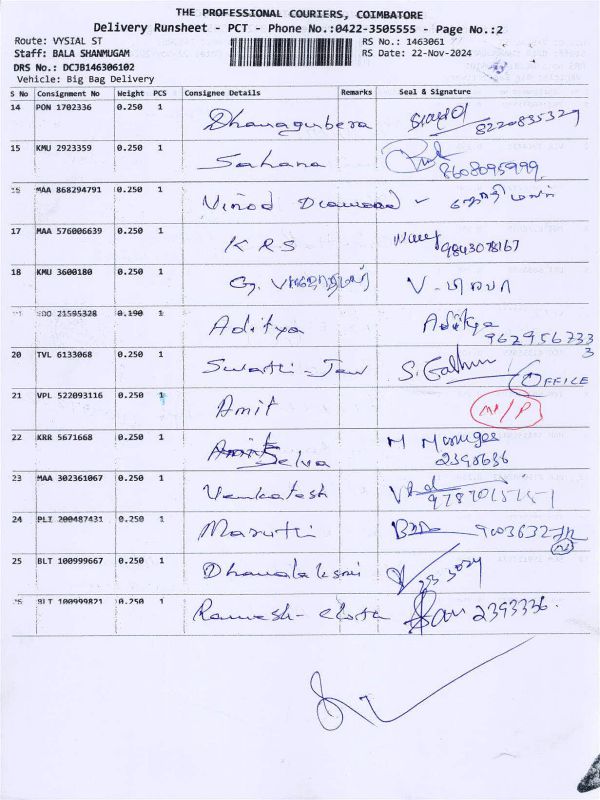 THE PROFESSIONAL COURIERS, COIMBATORE
Delivery Runsheet - PCT - Phone No.:0422-3505555 - Page No.:2
Route: VYSIAL ST
Staff: BALA SHANMUGAM
DRS No.: DCJB146306102
Vehicle: Big Bag Delivery
RS No.: 1463061
RS Date: 22-Nov-2024
S No Consignment No Weight PCS Consignee Details Remarks Seal & Signature
14 PON 1702336 0.250 1 Dhanagubera 8220835329
15 KMU 2923359 0.250 1 Sahana 8608095999
16 MAA 868294791 0.250 1 Vinod Diamond
17 MAA 576006639 0.250 1 KRS 9843078167
18 KMU 3600180 0.250 1 G. V-
21595328 0.190 1 Aditya Aditya
9629567333
20 TVL 6133068 0.250 1 Swathi-Jew S.
OFFICE
21 VPL 522093116 0.250 1 Amit
22 KRR 5671668 0.250 1 Selva M Muruges
2398636
23 MAA 302361067 0.250 1 Venkatesh
24 PLI 200487431 0.250 1 Maruthi
25 BLT 100999667 0.250 1 Dhanalaksmi
26 BLT 100999821 0.250 1 Ramesh- 2393336.